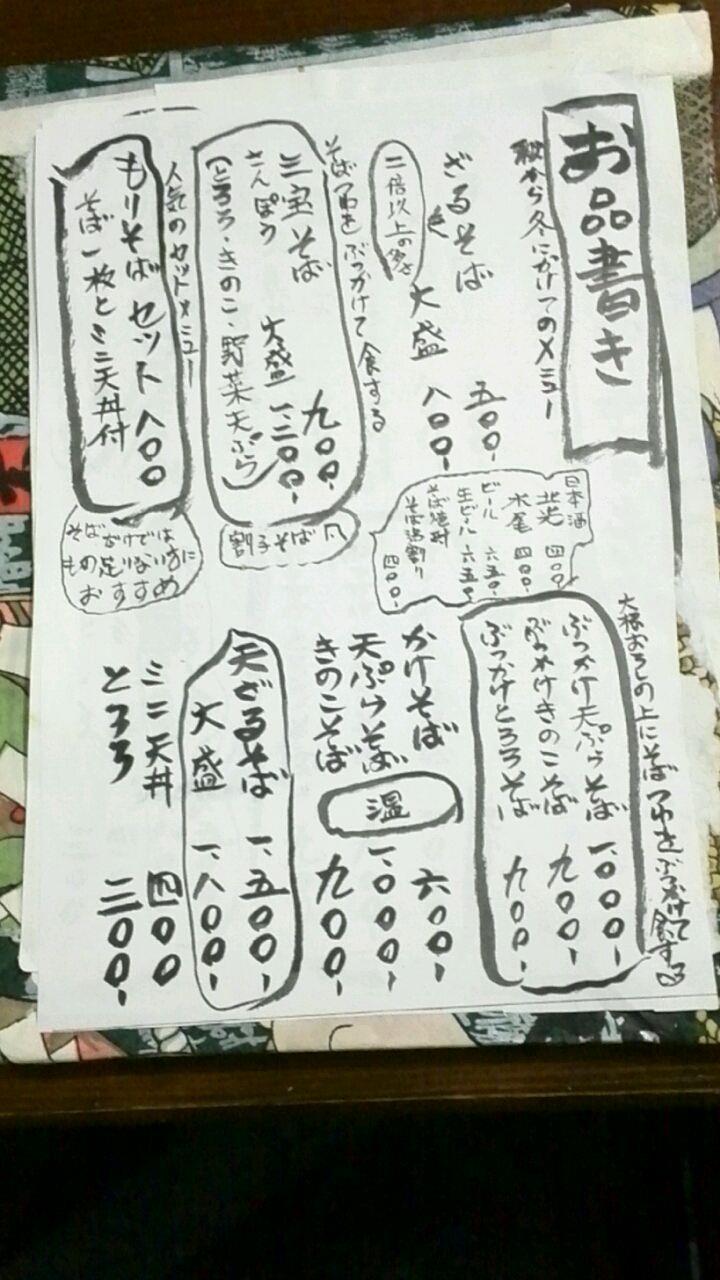 お品書き
秋から冬にかけてのメニュー
ざるそば 五〇〇、
大盛 八〇〇、
二倍以上の多さ
そばつゆをぶっかけて食する
三宝そば 九〇〇、
さんぽう 大盛 一、二〇〇、
(とろろ・きのこ・野菜天ぷら)
割子そば風
人気のセットメニュー
もりそばセット 八〇〇
そば一枚とミニ天丼付
そばだけでは
もの足りない方に
おすすめ
日本酒
北光 四〇〇、
水尾 四〇〇、
ビール 六五〇、
生ビール 六五〇、
そば焼酎
そば湯割り 四〇〇、
大根おろしの上にそばつゆをぶっかけて食する
ぶっかけ天ぷらそば 一、〇〇〇、
ぶっかけきのこそば 九〇〇、
ぶっかけとろろそば 九〇〇、
温
かけそば 六〇〇、
天ぷらそば 一、〇〇〇、
きのこそば 九〇〇、
天ざるそば 一、五〇〇、
大盛 一、八〇〇、
ミニ天丼 四〇〇
とろろ 二〇〇、